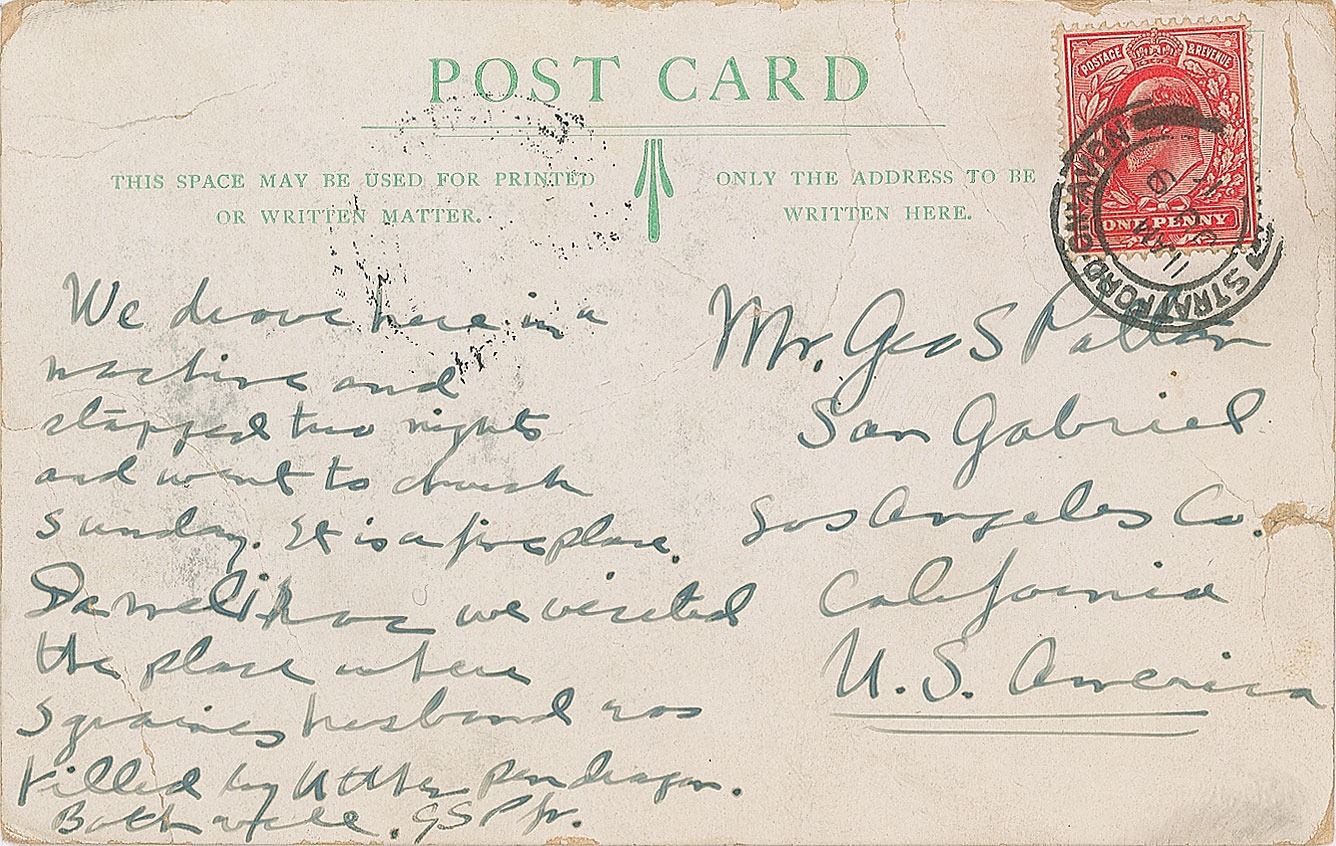 POST CARD
THIS SPACE MAY BE USED FOR PRINTED
OR WRITTEN MATTER.
ONLY THE ADDRESS TO BE
WRITTEN HERE.
POSTAGE & REVENUE
ONE PENNY
STRATFORD-ON-AVON
We drove here in a
machine and
stopped two nights
and went to church
Sunday. It is a fine place.
we visited
the place where
husband was
killed by Uther pendragon.
Both well. GSP Jr.
Mr. Geo S Patton
San Gabriel
Los Angeles Co.
California
U.S. America